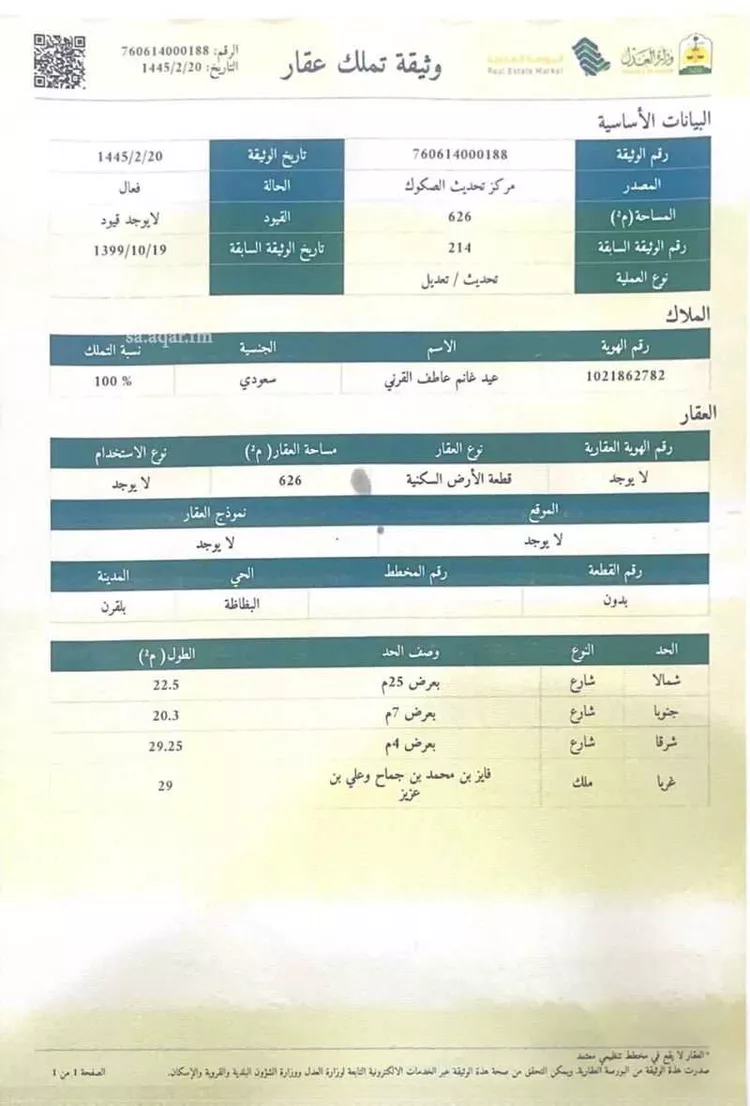 وزارة العدل
البورصة العقارية
Real Estate Market
وثيقة تملك عقار
الرقم: 760614000188
التاريخ: 1445/2/20
البيانات الأساسية
رقم الوثيقة 760614000188 تاريخ الوثيقة 1445/2/20
المصدر مركز تحديث الصكوك الحالة فعال
المساحة (م²) 626 القيود لايوجد قيود
رقم الوثيقة السابقة 214 تاريخ الوثيقة السابقة 1399/10/19
نوع العملية تحديث / تعديل
الملاك
sa.aqar.fm
رقم الهوية الاسم الجنسية نسبة التملك
1021862782 عيد غانم عاطف القرني سعودي 100 %
العقار
رقم الهوية العقارية نوع العقار مساحة العقار( م²) نوع الاستخدام
لا يوجد قطعة الأرض السكنية 626 لا يوجد
الموقع نموذج العقار
لا يوجد لا يوجد
رقم القطعة رقم المخطط الحي المدينة
بدون البظاظة بلقرن
الحد النوع وصف الحد الطول( م²)
شمالا شارع بعرض 25م 22.5
جنوبا شارع بعرض 7م 20.3
شرقا شارع بعرض 4م 29.25
غربا ملك فايز بن محمد بن جماح وعلي بن عزيز 29
*العقار لا يقع في مخطط تنظيمي معتمد
صدرت هذة الوثيقة من البورصة العقارية. ويمكن التحقق من صحة هذة الوثيقة عبر الخدمات الالكترونية التابعة لوزارة العدل ووزارة الشؤون البلدية والقروية والإسكان.
الصفحة 1 من 1